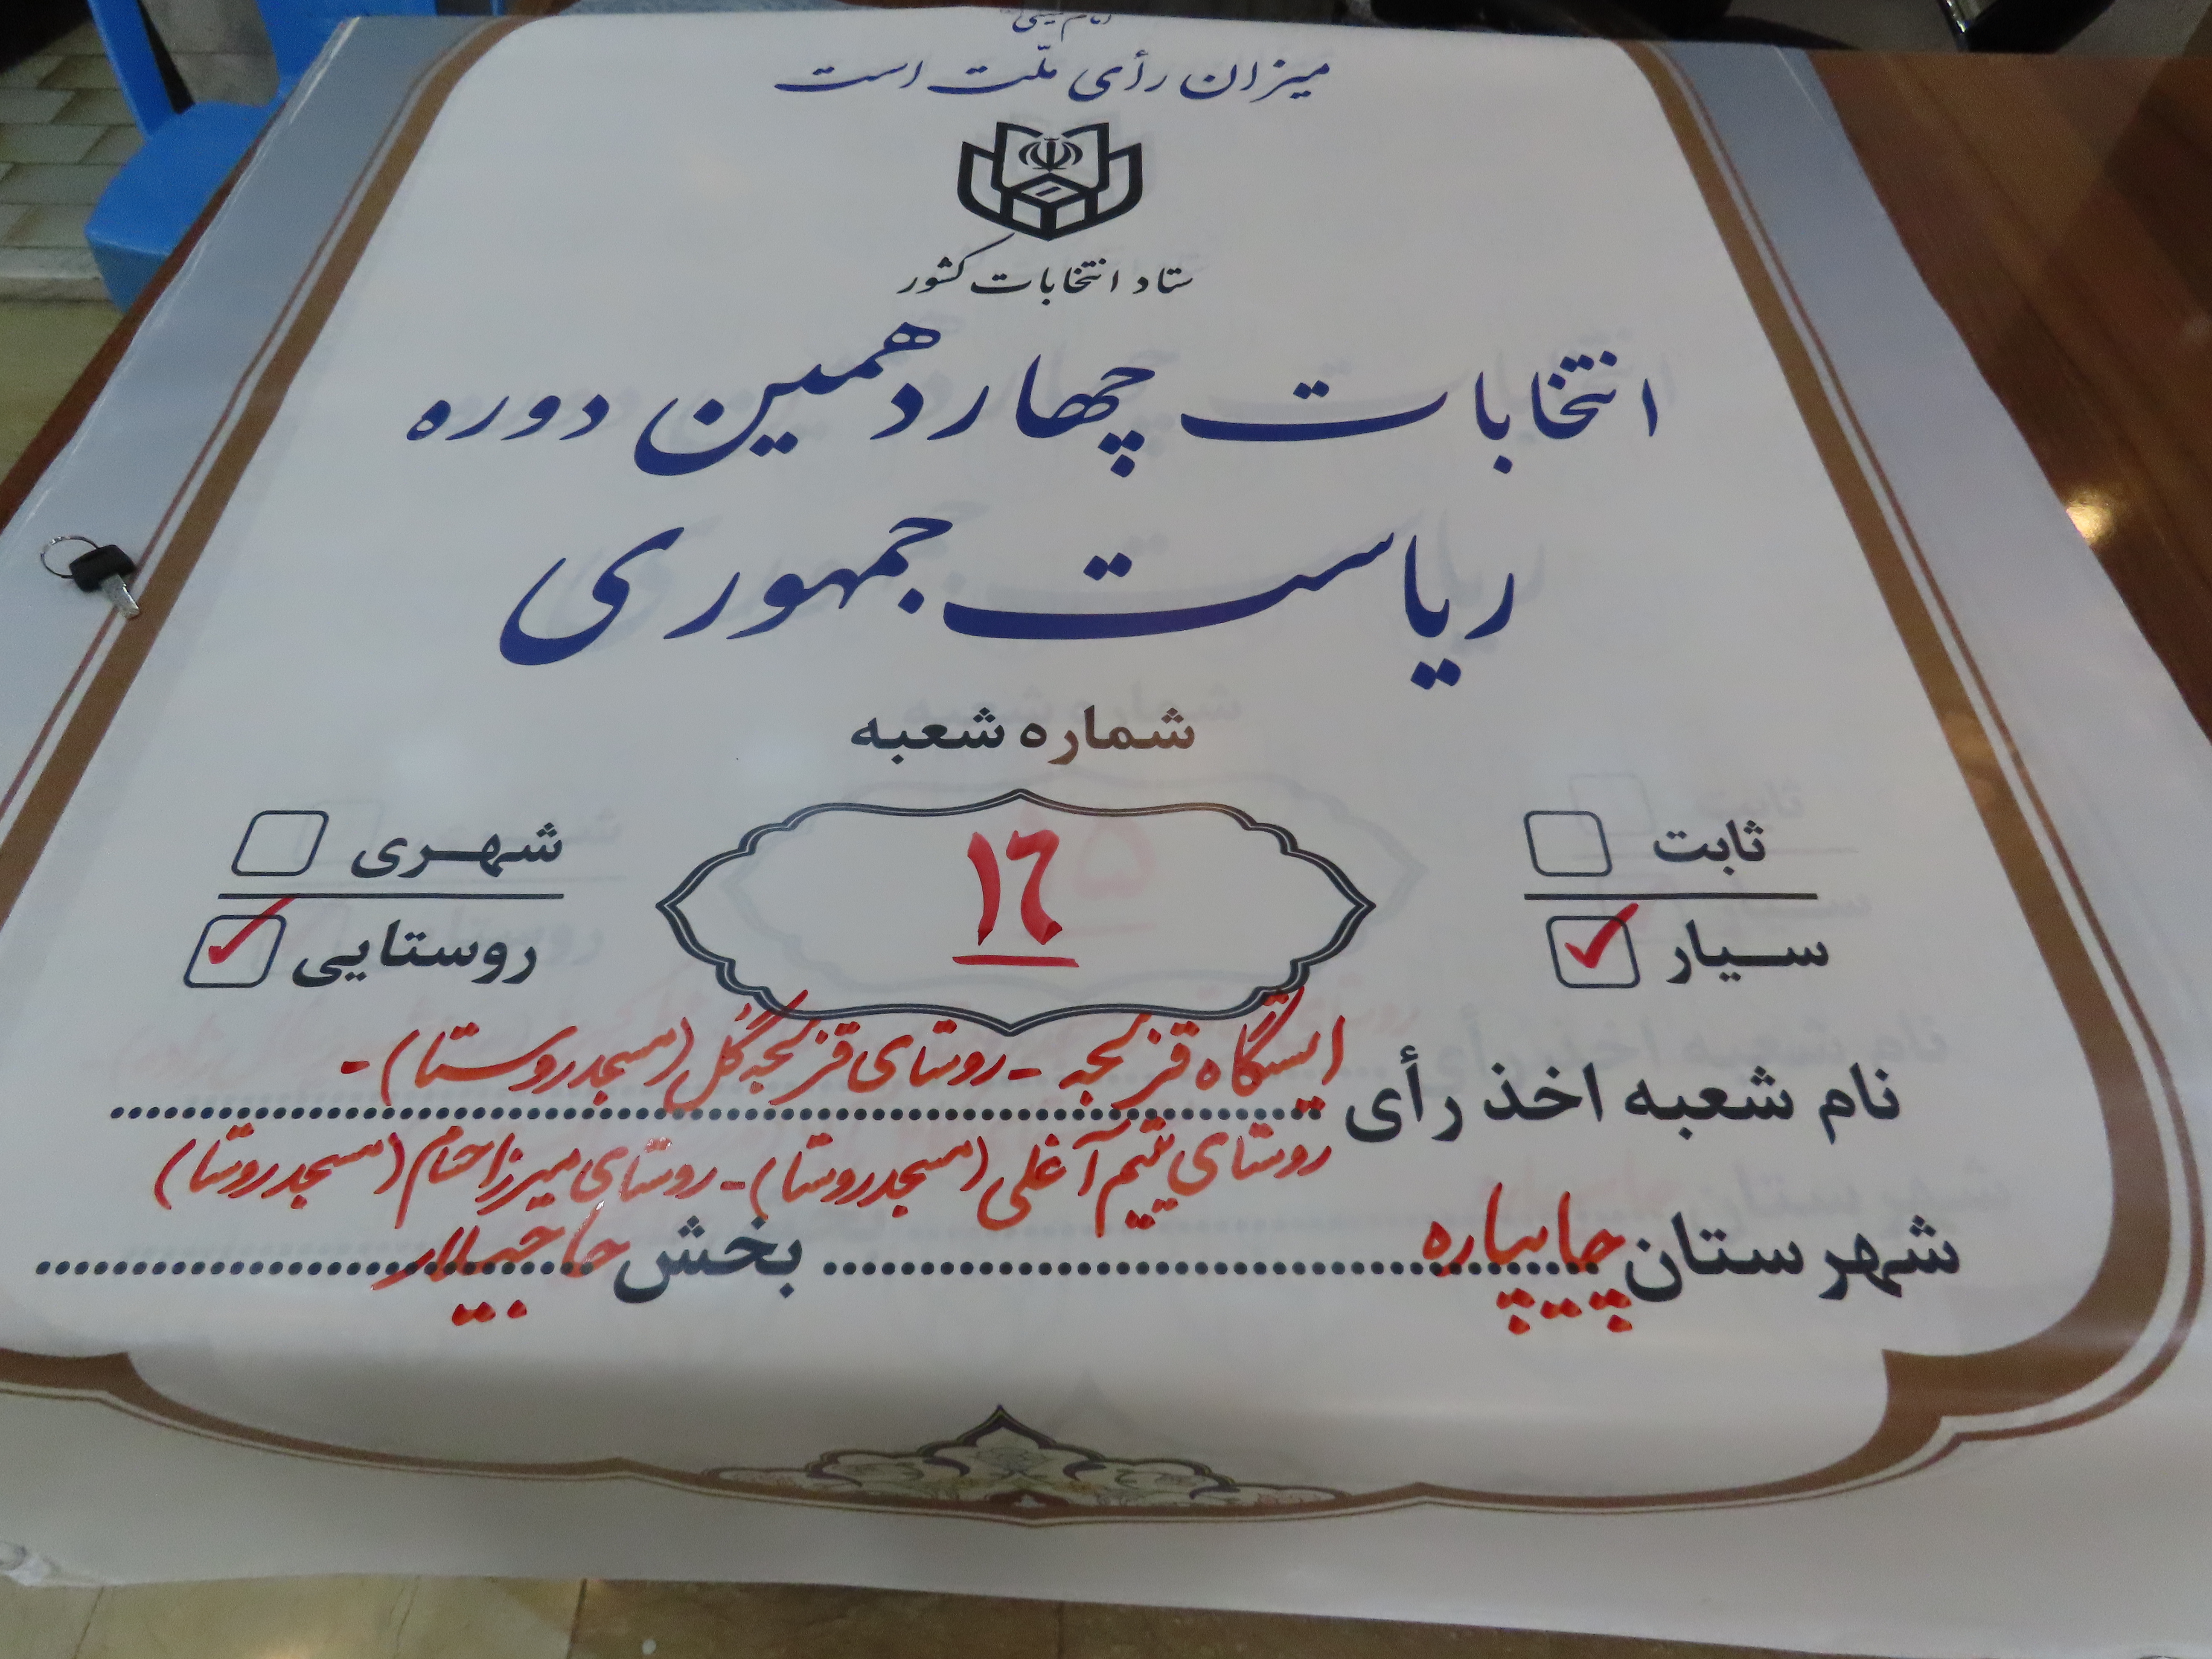 امام خمینی
میزان رأی ملّت است
ستاد انتخابات کشور
انتخابات چهاردهمین دوره
ریاست جمهوری
شماره شعبه
ثابت
سیار
۱۶
شهری
روستایی
نام شعبه اخذ رأی ایستگاه قزلجه - روستای قزلجه گُل (مسجد روستا) -
روستای یتیم آغلی (مسجد روستا) - روستای میرزا خام (مسجد روستا)
شهرستان چایپاره بخش حاجیلار